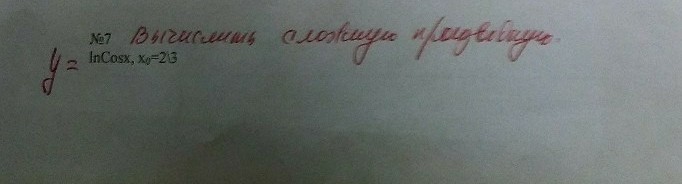 №7 Вычислить сложную производную.
y= lnCosx, x₀=2\3